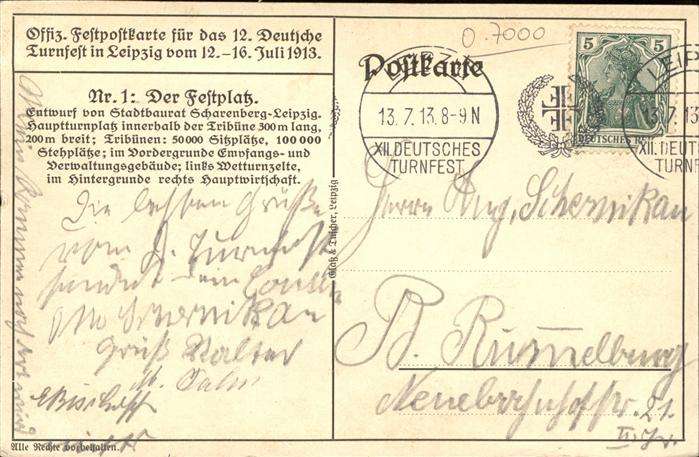 Offiz. Festpostkarte für das 12. Deutsche
Turnfest in Leipzig vom 12.–16. Juli 1913.
Nr. 1: Der Festplatz.
Entwurf von Stadtbaurat Scharenberg-Leipzig.
Hauptturnplatz innerhalb der Tribüne 300 m lang,
200 m breit; Tribünen: 50000 Sitzplätze, 100000
Stehplätze; im Vordergrunde Empfangs- und
Verwaltungsgebäude; links Wetturnzelte,
im Hintergrunde rechts Hauptwirtschaft.
Die besten Grüße
vom D. Turnfest
sendet dein
Otto Schernikau
Gruß Walter
Alle Rechte vorbehalten.
Postkarte
O. 7000
13.7.13.8-9N
XII.DEUTSCHES
TURNFEST
5 5
DEUTSCHES REICH
LEIPZ
13.7.13
XII.DEUT
TURN
Herrn Aug. Schernikau
B. Rummelsburg
Neue Bahnhofstr. 21.